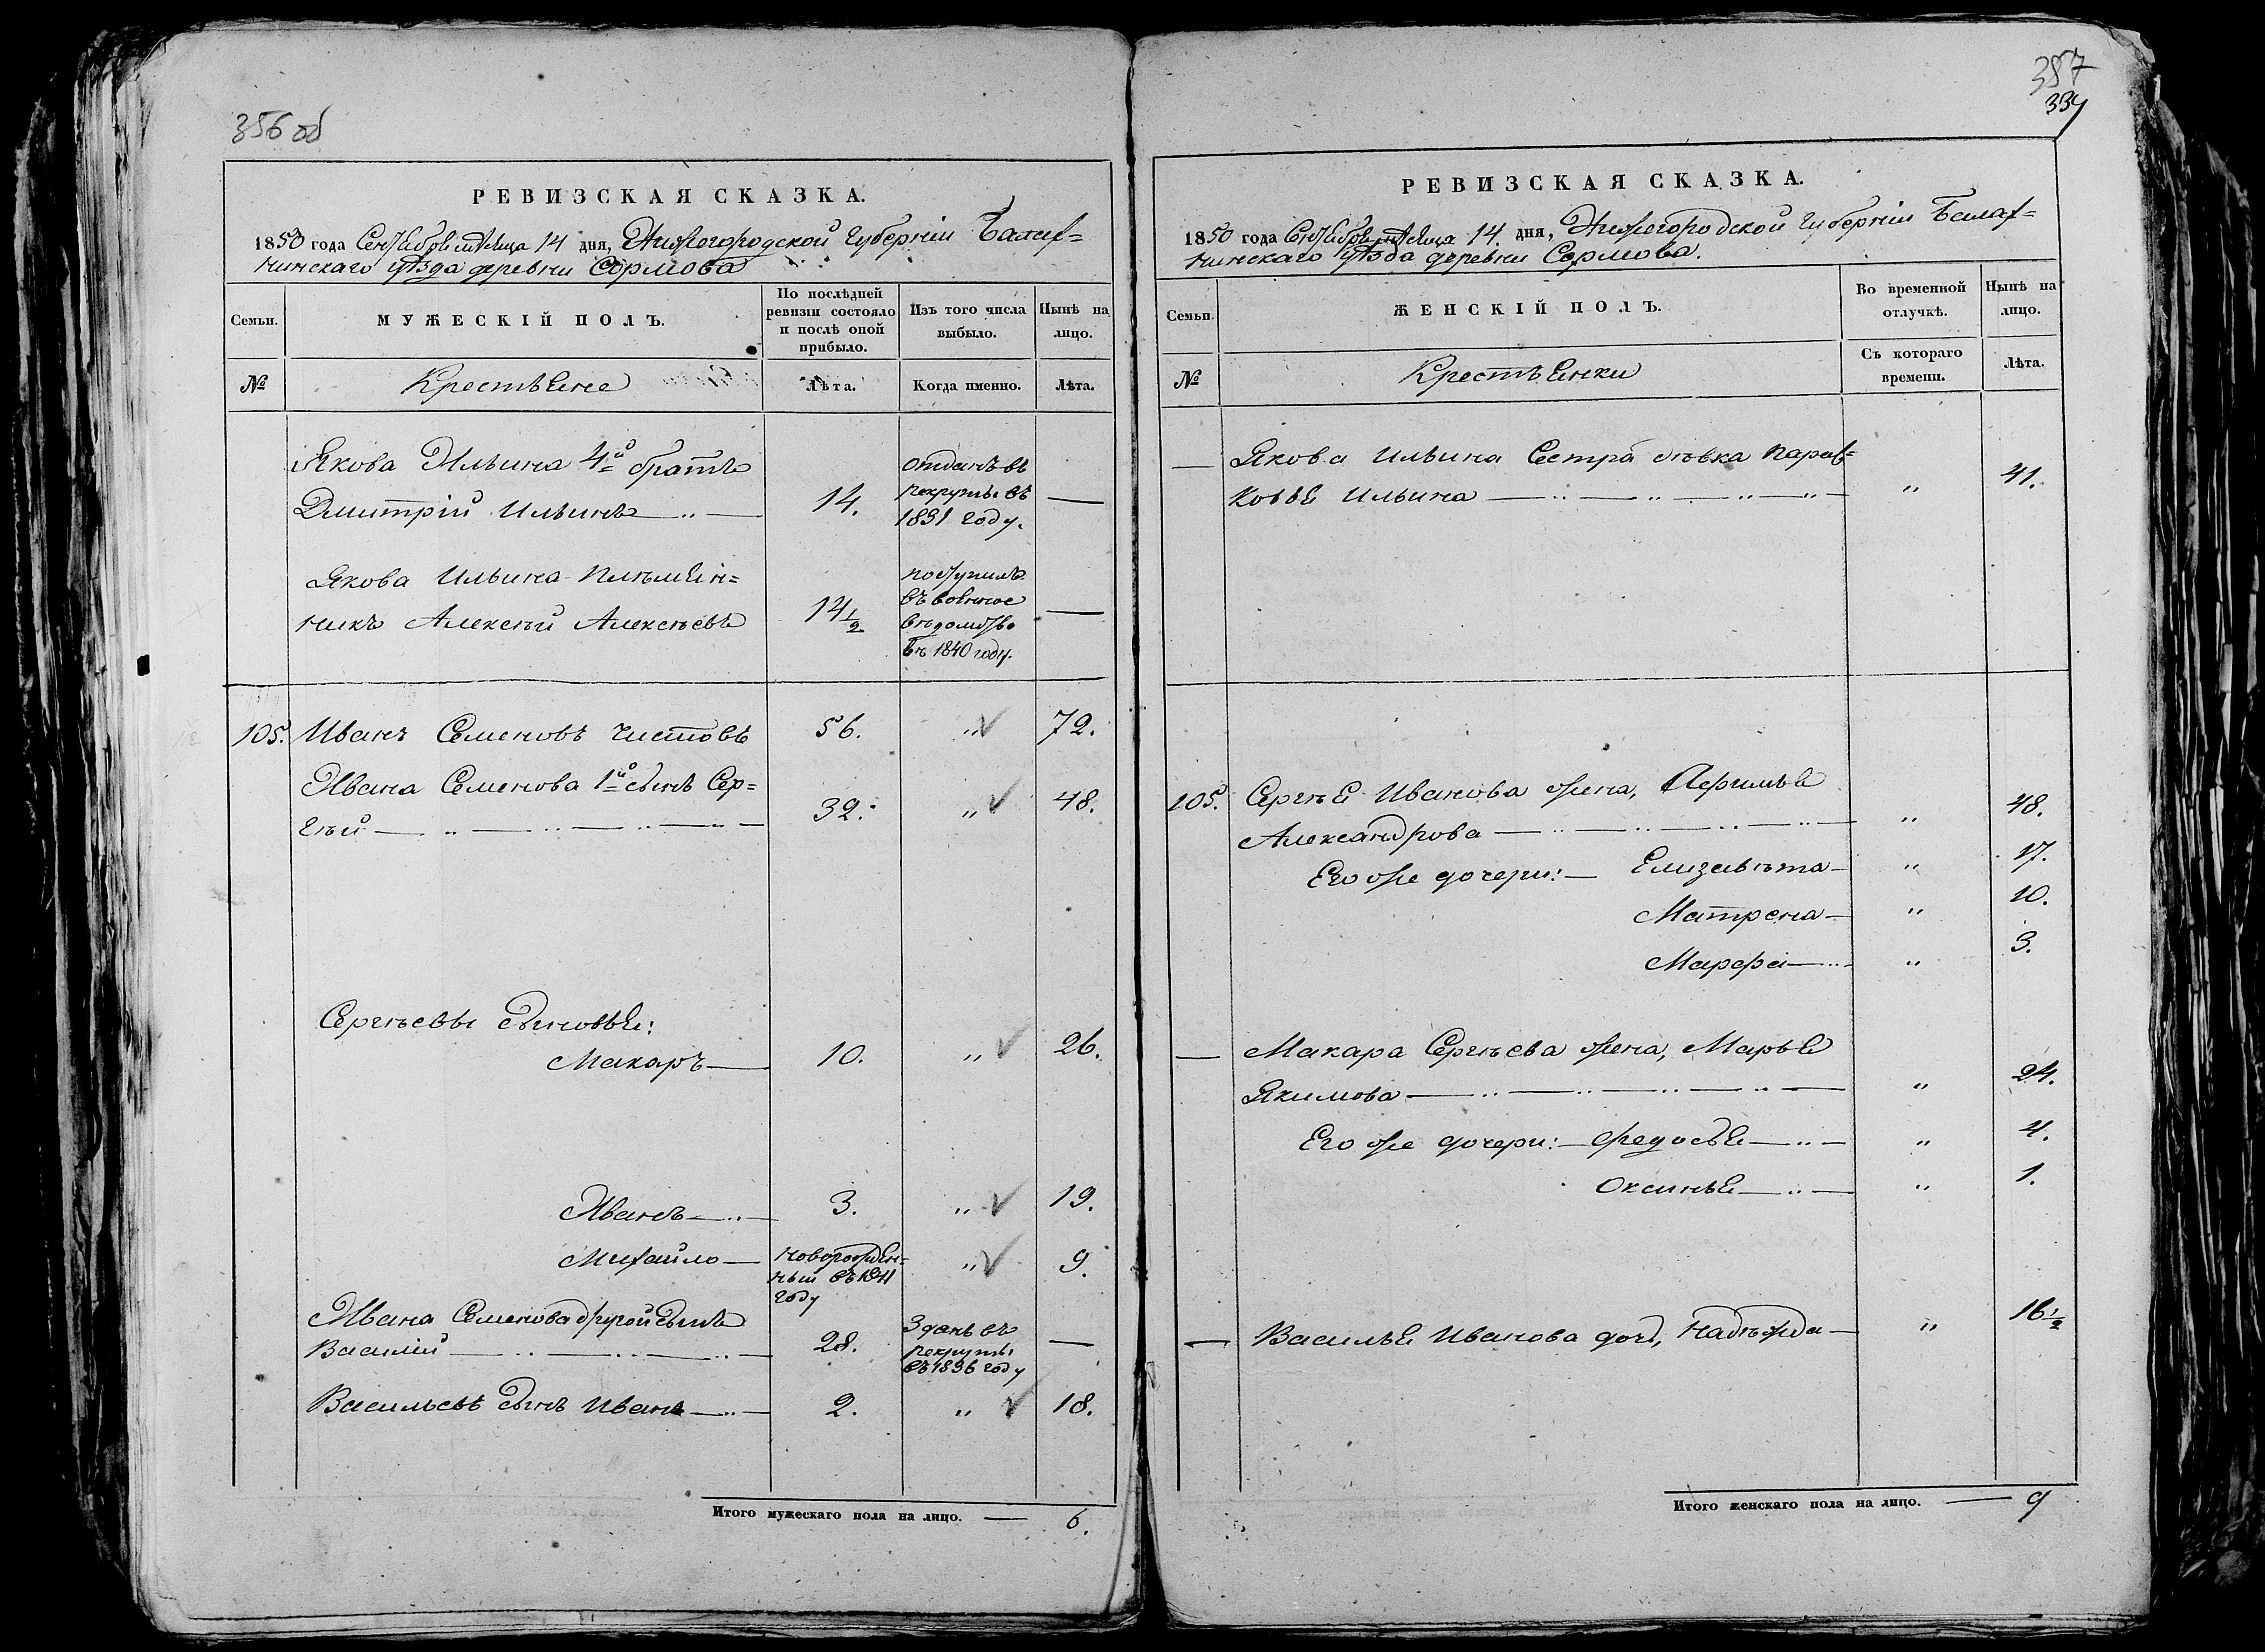 356 об
РЕВИЗСКАЯ СКАЗКА.
1850 года Сентября мѣсяца 14 дня, Нижегородской Губерніи Балах=
нинскаго уѣзда деревни Сормова
Семьи.
МУЖЕСКІЙ ПОЛЪ.
По послѣдней
ревизіи состояло
и послѣ оной
прибыло.
Изъ того числа
выбыло.
Нынѣ на
лицо.
№
Крестьяне
Лѣта.
Когда именно.
Лѣта.
Якова Ильина 4й братъ
Дмитрій Ильинъ
14.
отданъ въ
рекруты въ
1831 году.
Якова Ильина племян=
никъ Алексѣй Алексѣевъ
14 1/2
поступилъ
въ военное
вѣдомство
въ 1840 году.
105. Иванъ Семеновъ Чистовъ 56. " 72.
Ивана Семенова 1й сынъ Сер=
гѣй 32. " 48.
Сергѣевы сыновья:
Макаръ 10. " 26.
Иванъ 3. " 19.
Михайло
новорожден=
ный въ 1841
году
" 9.
Ивана Семенова другой сынъ
Василій 28.
Зданъ въ
рекруты
въ 1836 году
Васильевъ сынъ Иванъ 2. " 18.
Итого мужескаго пола на лицо. — 6.
357
334
РЕВИЗСКАЯ СКАЗКА.
1850 года Сентября мѣсяца 14. дня, Нижегородской Губерніи Балах=
нинскаго уѣзда деревни Сормова.
Семьи.
ЖЕНСКІЙ ПОЛЪ.
Во временной
отлучкѣ.
Нынѣ на
лицо.
№
Крестьянки
Съ котораго
времени.
Лѣта.
— Якова Ильина Сестра дѣвка Парас=
ковья Ильина " 41.
105. Сергѣя Иванова жена, Афимья
Александрова " 48.
Его же дочери: — Елизавѣта — " 17.
Матрена — " 10.
Марфа — " 3.
— Макара Сергѣева жена, Марья
Якимова " 24.
Его же дочери: — Федосья " 4.
Оксинья " 1.
— Василья Иванова дочь, Надѣжда — " 16 1/2
Итого женскаго пола на лицо. — 9